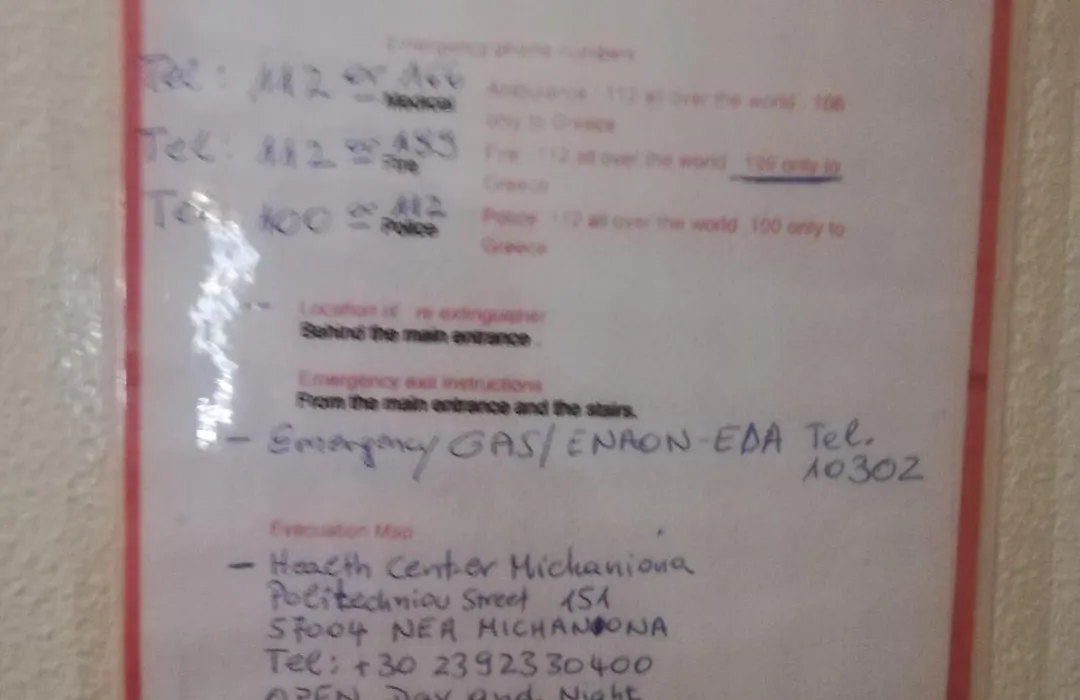 Emergency phone numbers
Tel: 112 or 166
Medical
Ambulance : 112 all over the world 166
only to Greece
Tel: 112 or 199
Fire
Fire : 112 all over the world 199 only to
Greece
Tel: 100 or 112
Police
Police : 112 all over the world 100 only to
Greece
Location of extinguisher
Behind the main entrance .
Emergency exit instructions
From the main entrance and the stairs.
- Emergency GAS/ENAON-EDA Tel.
10302
Evacuation Map
- Health Center Michaniona
Politechniou Street 151
57004 NEA MICHANIONA
Tel: +30 2392330400
OPEN Day and Night